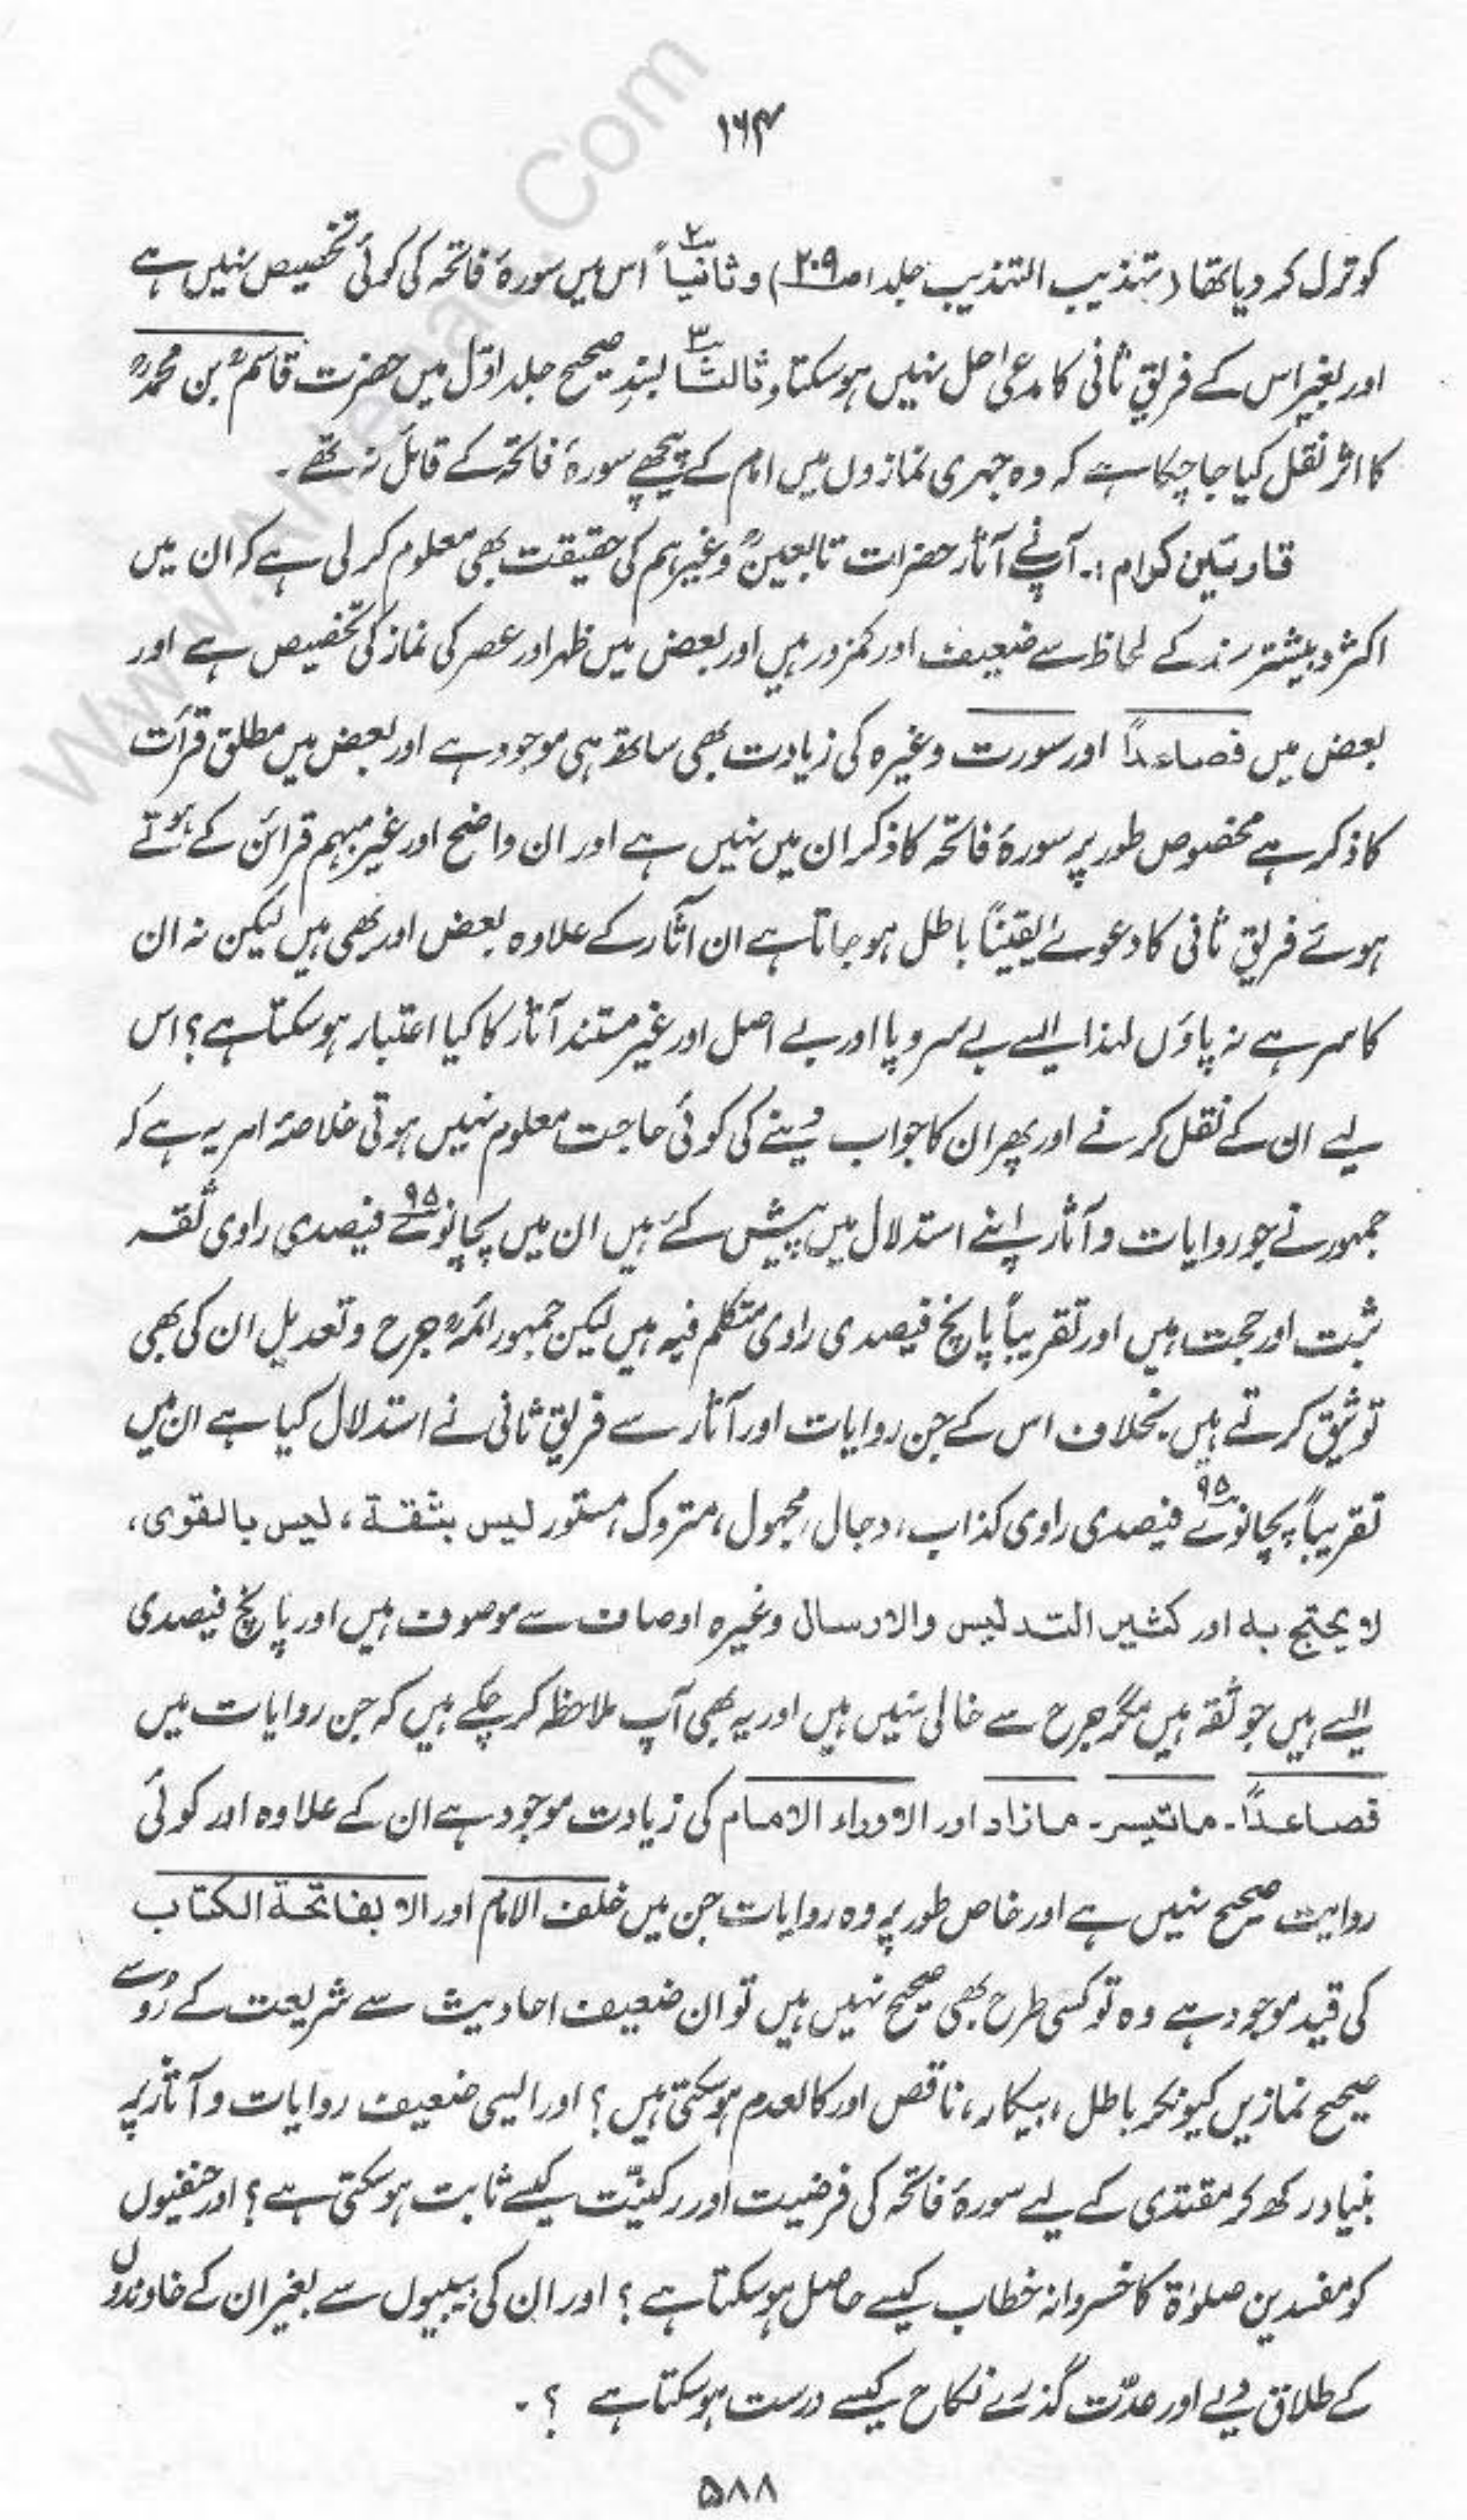 ۱۶۴
کو ترک کر دیا تھا (تہذیب التہذیب جلد ۱ ص۲۰۹) و ثانیاً ۲ اس میں سورۂ فاتحہ کی کوئی تخصیص نہیں ہے
اور بغیر اس کے فریقِ ثانی کا مدعیٰ حل نہیں ہو سکتا و ثالثاً ۳ بسندِ صحیح جلد اوّل میں حضرت قاسمؒ بن محمدؒ
کا اثر نقل کیا جا چکا ہے کہ وہ جہری نمازوں میں امام کے پیچھے سورۂ فاتحہ کے قائل نہ تھے ۔
قارئین کرام :۔ آپنے آثار حضرات تابعینؒ وغیرہم کی حقیقت بھی معلوم کر لی ہے کہ ان میں
اکثر و بیشتر سند کے لحاظ سے ضعیف اور کمزور ہیں اور بعض میں ظہر اور عصر کی نماز کی تخصیص ہے اور
بعض میں فصاعداً اور سورت وغیرہ کی زیادت بھی ساتھ ہی موجود ہے اور بعض میں مطلق قرأت
کا ذکر ہے مخصوص طور پر سورۂ فاتحہ کا ذکر ان میں نہیں ہے اور ان واضح اور غیر مبہم قرائن کے ہوتے
ہوئے فریقِ ثانی کا دعوےٰ یقیناً باطل ہو جاتا ہے ان آثار کے علاوہ بعض اور بھی ہیں لیکن نہ ان
کا سر ہے نہ پاؤں لہٰذا ایسے بے سر و پا اور بے اصل اور غیر مستند آثار کا کیا اعتبار ہو سکتا ہے؟ اس
لیے ان کے نقل کرنے اور پھر ان کا جواب دینے کی کوئی حاجت معلوم نہیں ہوتی خلاصۂ امر یہ ہے کہ
جمہور نے جو روایات و آثار اپنے استدلال میں پیش کئے ہیں ان میں پچانوے ۹۵ فیصدی راوی ثقہ
ثبت اور حجت ہیں اور تقریباً پانچ فیصدی راوی متکلم فیہ ہیں لیکن جمہور ائمہؒ جرح و تعدیل ان کی بھی
توثیق کرتے ہیں بخلاف اس کے جن روایات اور آثار سے فریقِ ثانی نے استدلال کیا ہے ان میں
تقریباً پچانوے ۹۵ فیصدی راوی کذاب، دجال، مجہول، متروک، مستور لیس بثقة، لیس بالقوی،
لا یحتج بہ اور کثیر التدلیس والارسال وغیرہ اوصاف سے موصوف ہیں اور پانچ فیصدی
ایسے ہیں جو ثقہ ہیں مگر جرح سے خالی نہیں ہیں اور یہ بھی آپ ملاحظہ کر چکے ہیں کہ جن روایات میں
فصاعداً ۔ ماتیسر ۔ مازاد اور الا وراء الامام کی زیادت موجود ہے ان کے علاوہ اور کوئی
روایت صحیح نہیں ہے اور خاص طور پر وہ روایات جن میں خلف الامام اور الا بفاتحة الکتاب
کی قید موجود ہے وہ تو کسی طرح بھی صحیح نہیں ہیں تو ان ضعیف احادیث سے شریعت کے رُو سے
صحیح نمازیں کیونکر باطل، بیکار، ناقص اور کالعدم ہو سکتی ہیں؟ اور ایسی ضعیف روایات و آثار پر
بنیاد رکھ کر مقتدی کے لیے سورۂ فاتحہ کی فرضیت اور رکنیّت کیسے ثابت ہو سکتی ہے؟ اور حنفیوں
کو مفسدین صلوٰة کا خسروانہ خطاب کیسے حاصل ہو سکتا ہے؟ اور ان کی بیبیوں سے بغیر ان کے خاوندوں
کے طلاق دیے اور عدّت گذرے نکاح کیسے درست ہو سکتا ہے ؟ ۔
۵۸۸